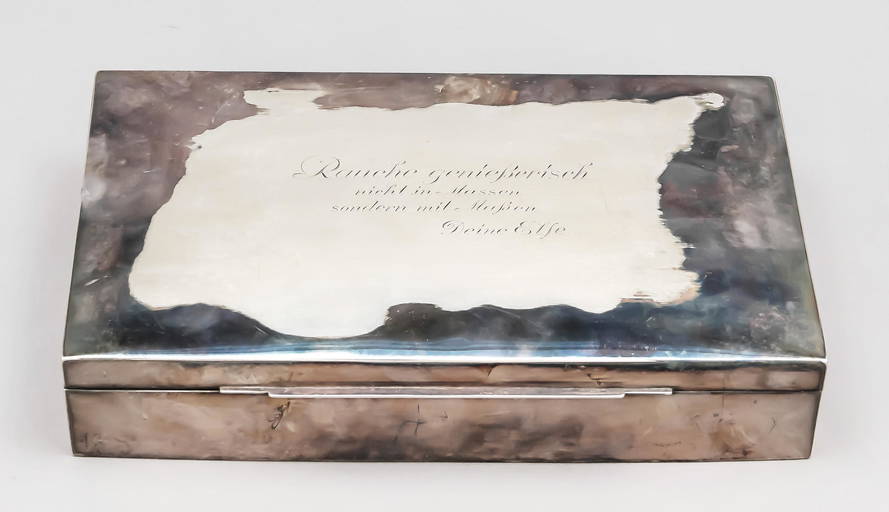 Rauche genießerisch
nicht in Massen
sondern mit Maßen
Deine Else